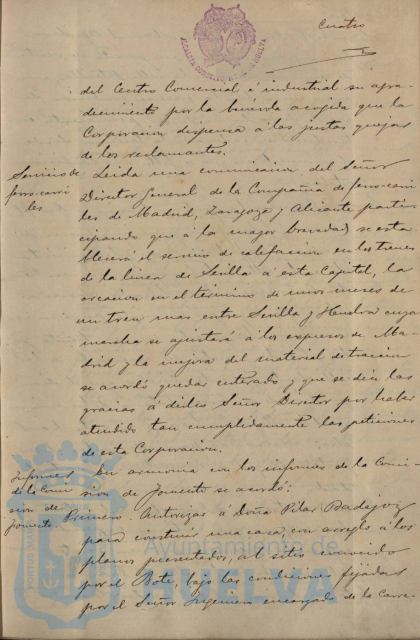 Cuatro
ALCALDIA CONSTITUCIONAL DE HUELVA
del Centro Comercial é industrial su agra-
decimiento por la buena acogida que la
Corporacion dispensa á las justas quejas
de los reclamantes.
Servicio de
ferro-carri
les
Leida una comunicacion del Señor
Director General de la Compañia de ferro-carri-
les de Madrid, Zaragoza y Alicante parti-
cipando que á la mayor brevedad se esta-
blecerá el servicio de calefaccion en los trenes
de la linea de Sevilla á esta Capital, la
creacion en el término de unos meses de
un tren mas entre Sevilla y Huelva cuya
marcha se ajustará á los expresos de Ma-
drid y la mejora del material de traccion
se acordó quedar enterado y que se dén las
gracias á dicho Señor Director por haber
atendido tan cumplidamente las peticiones
de esta Corporacion.
Informes
de la Comi
sion de
fomento
En armonia con los informes de la Comi-
sion de Fomento se acordó:
Primero. Autorizar á Doña Pilar Badajoz
para construir una casa, con arreglo á los
planos presentados, al sitio conocido
por el Bote, bajo las condiciones fijadas
por el Señor Ingeniero encargado de la Carre-
Ayuntamiento de
HUELVA